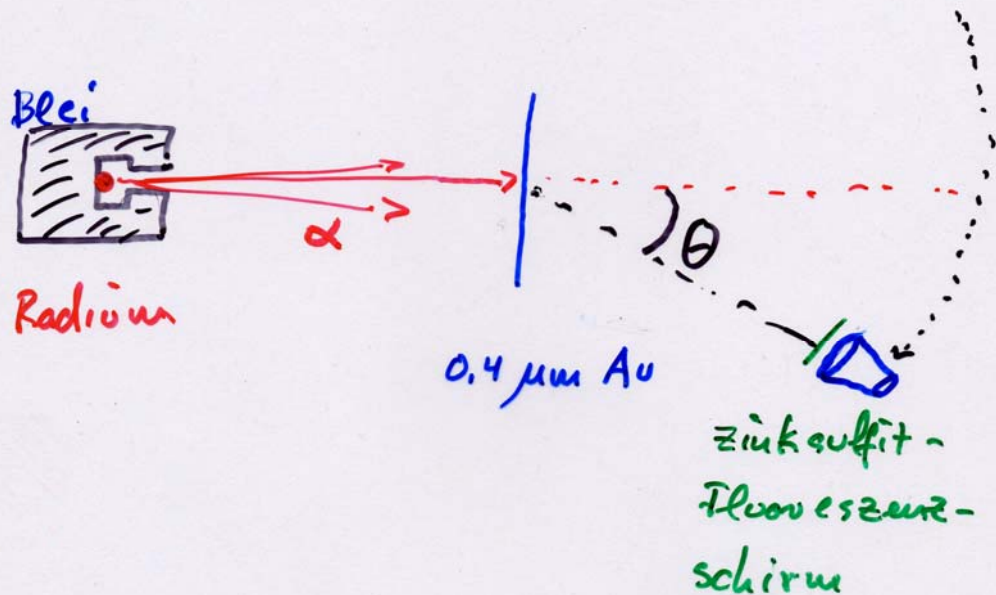 Blei
α
θ
Radium
0.4 μm Au
Zinksulfit-
Fluoreszenz-
schirm